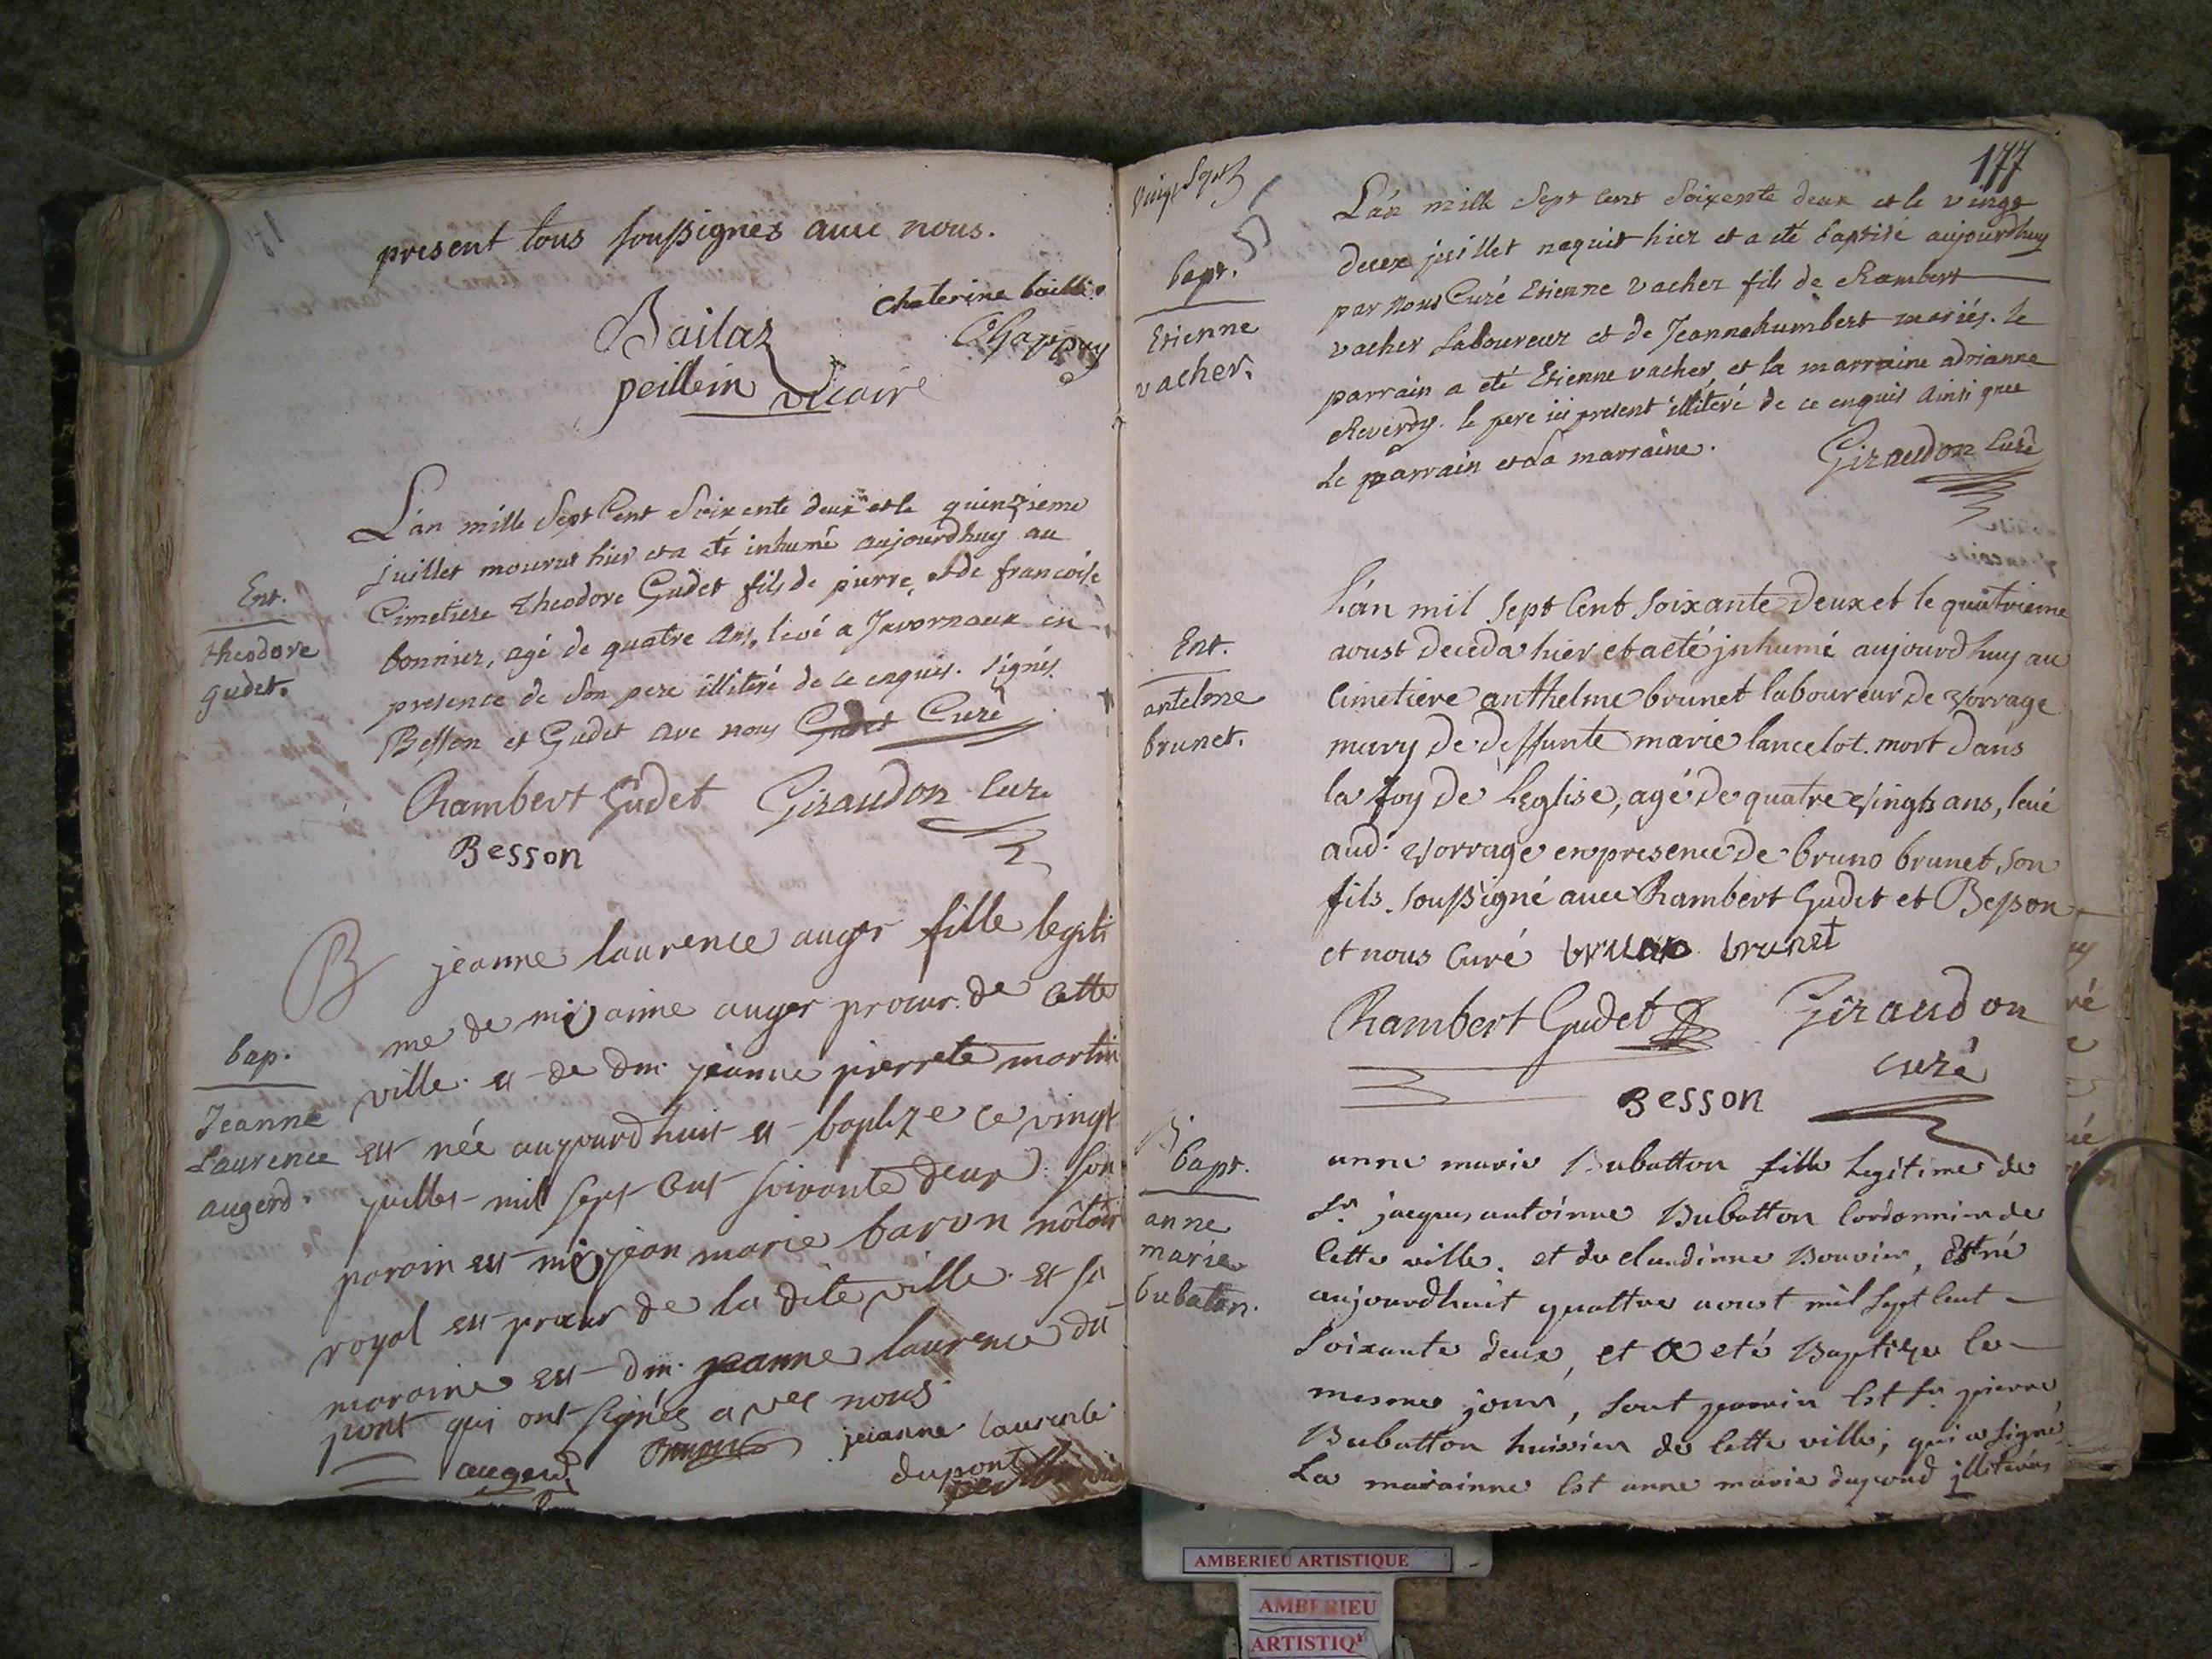 present tous soussignés avec nous.
chaterine baillie
Bailaz
Chappuy
peillein vicaire
L'an mille Sept Cent Soixente deux et le quinzieme
juillet mourut hier et a eté inhumé aujourdhuy au
Cimetiere Theodore Gudet fils de pierre et de francoise
bonnier, agé de quatre Ans, levé a Javornaux en
presence de Son pere illiteré de ce enquis. signés.
Besson et Gudet avec nous Gudet Curé
Ent.
theodore
gudet.
Rambert Gudet Giraudon Curé
Besson
B jeanne laurence auger fille legiti
me de me aime auger procur. de cette
ville. et de dm. jeanne pierrete martin
est née aujourdhuit et baptize ce vingt
juillet mil sept cent soixante deux. son
parain est me jean marie baron nôtair
royal et procur de la dite ville. et sa
maraine est dm. jeanne laurence du
pont qui ont signés avec nous
bap.
Jeanne
Laurence
augerd.
augerd
jeanne laurence
dupont
177
vingt sept
L'an mille Sept cent Soixente deux et le vingt
deux juillet naquit hier et a eté baptisé aujourdhuy
par nous Curé Etienne Vacher fils de Rambert
vacher Laboureur et de Jeanne humbert mariés. le
parrain a eté Etienne vacher et la marraine adrianne
Reverdy. le pere ici present illiteré de ce enquis Ainsi que
Le parrain et La marraine. Giraudon Curé
bapt.
Etienne
vacher.
L'an mil sept Cent soixante Deux et le quatrieme
aoust deceda hier et a eté jnhumé aujourdhuy au
Cimetiere anthelme brunet laboureur de Vorrage
mary de deffunte marie lancelot. mort dans
la foy de L'eglise, agé de quatre vingts ans, levé
aud. Vorrage en presence de bruno brunet, son
fils. soussigné avec Rambert Gudet et Besson
et nous Curé bruno brunet
Ent.
antelme
brunet.
Rambert Gudet Giraudon
curé
Besson
anne marie Bubatton fille legitime de
Sr. jacques antoinne Bubatton Cordonnier de
Cette ville. et de claudinne Bouvier, est né
aujourdhuit quattre aoust mil sept Cent
Soixante deux, et a eté Baptizé le
mesme jour, sont parrin Est Sr. pierre
Bubatton huissier de Cette ville, qui a signé
La marainne Est anne marie dupond jlliterée
bapt.
anne
marie
bubaton.
AMBERIEU ARTISTIQUE
AMBERIEU
ARTISTIQ